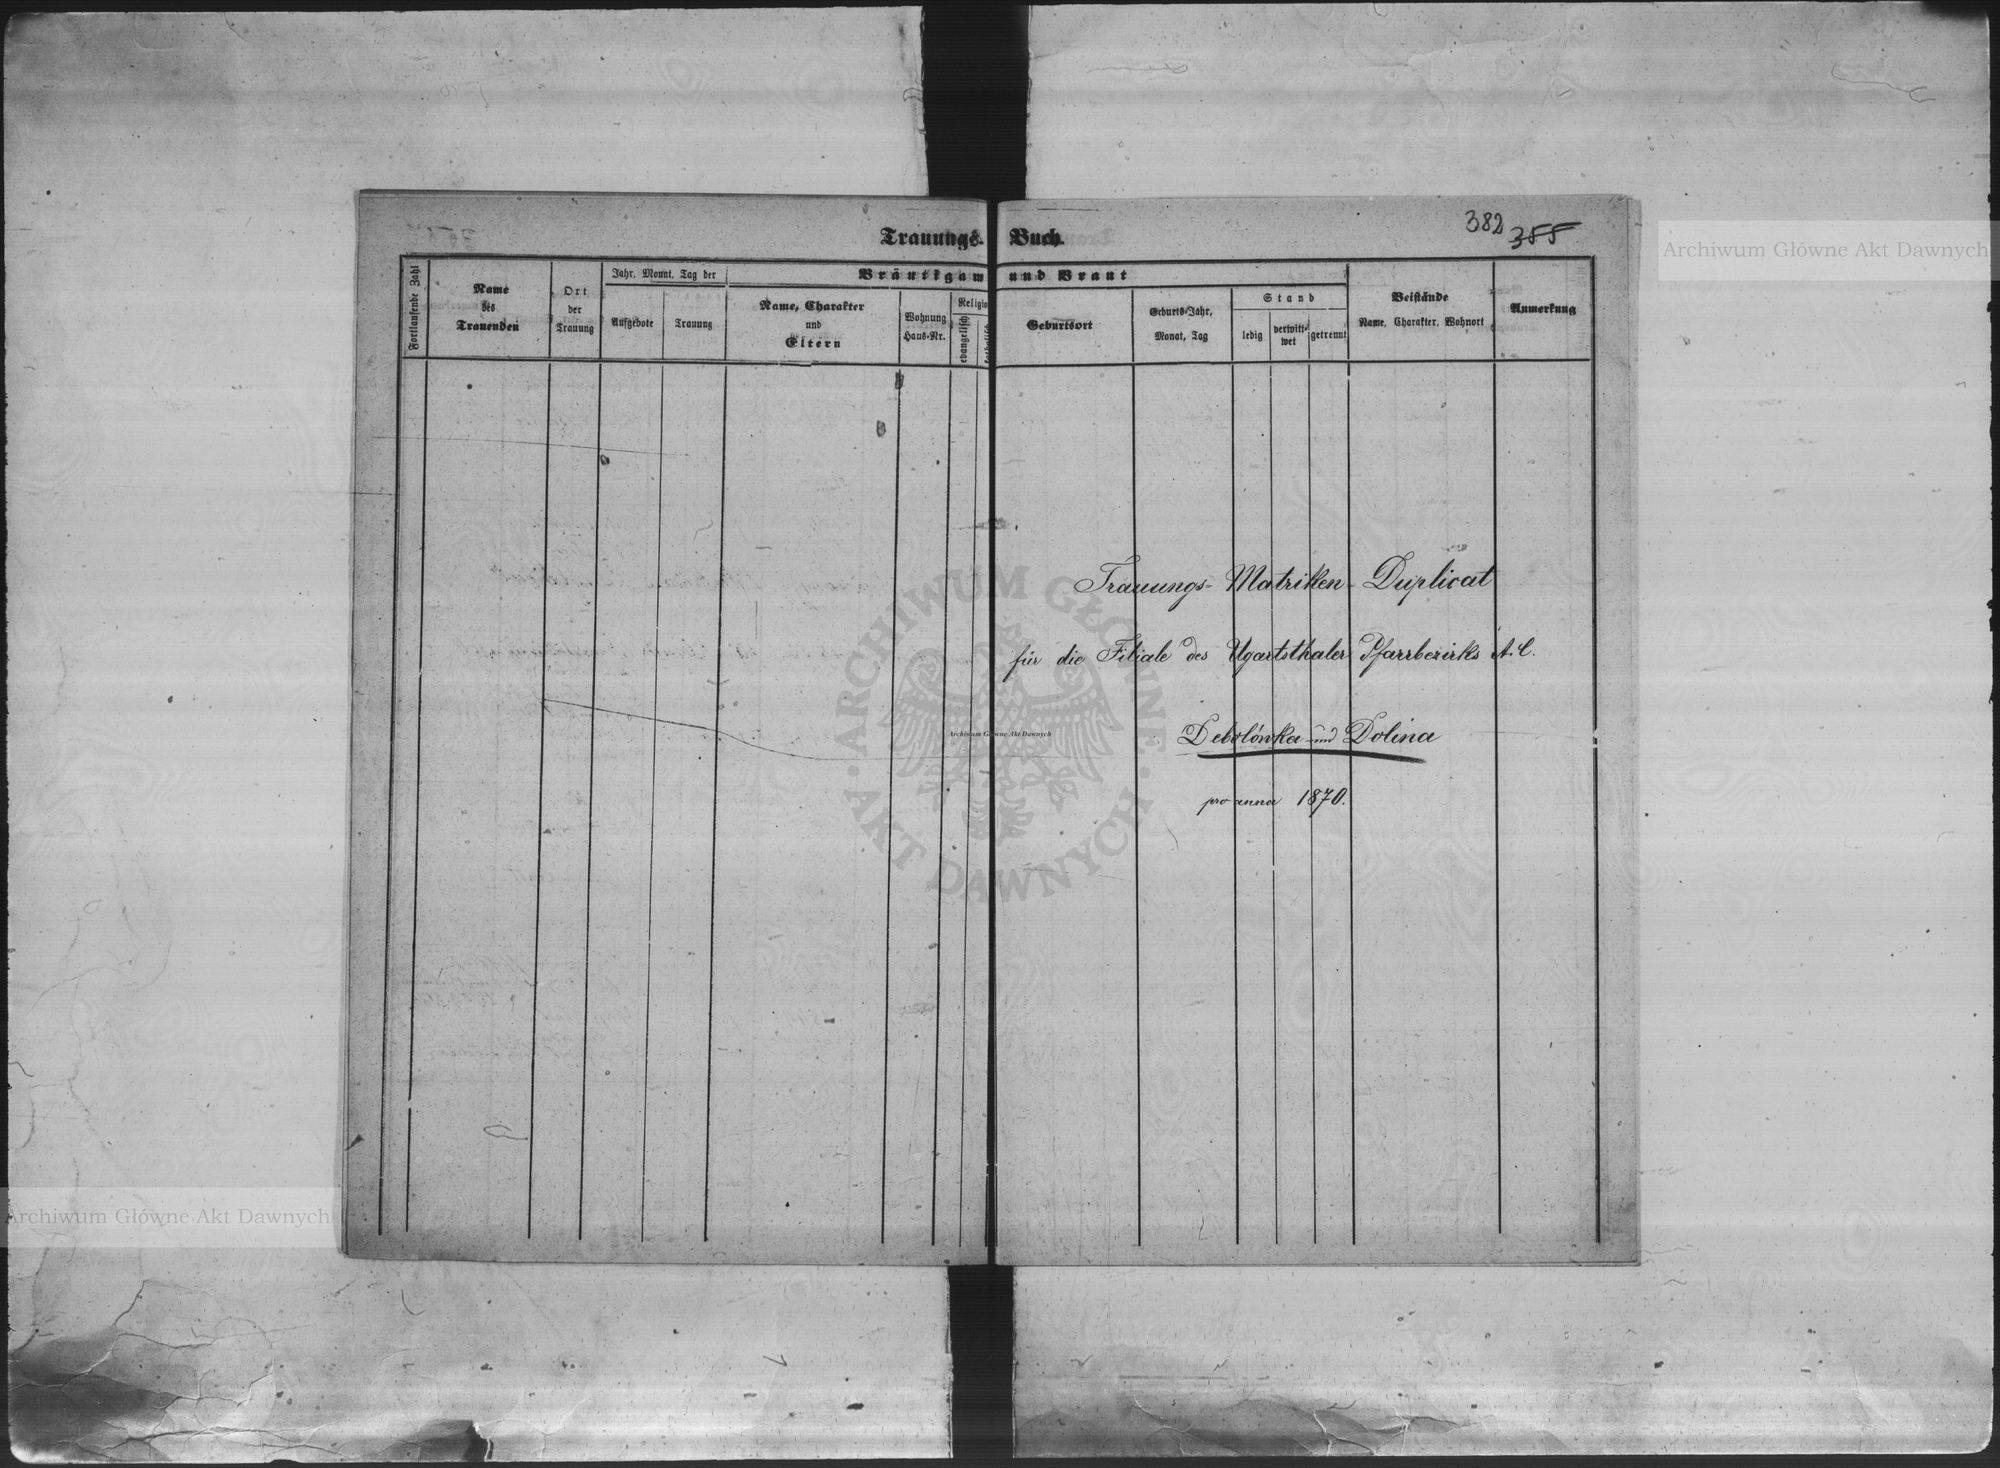 382 355
Trauungs-Buch.
Fortlaufende Zahl
Name
des
Trauenden
Ort
der
Trauung
Jahr, Monat, Tag der
Aufgebote
Trauung
Bräutigam und Braut
Name, Charakter
und
Eltern
Wohnung
Haus-Nr.
Religio
evangelisch
katholisch
Geburtsort
Geburts-Jahr,
Monat, Tag
Stand
ledig
verwitt-
wet
getrennt
Beistände
Name, Charakter, Wohnort
Anmerkung
Trauungs-Matriken-Duplicat
für die Filiale des Ugartsthaler Pfarrbezirks A. C.
Debolówka und Dolina
pro anno 1870.
Archiwum Główne Akt Dawnych
Archiwum Główne Akt Dawnych
Archiwum Główne Akt Dawnych
ARCHIWUM GŁÓWNE
· AKT DAWNYCH ·